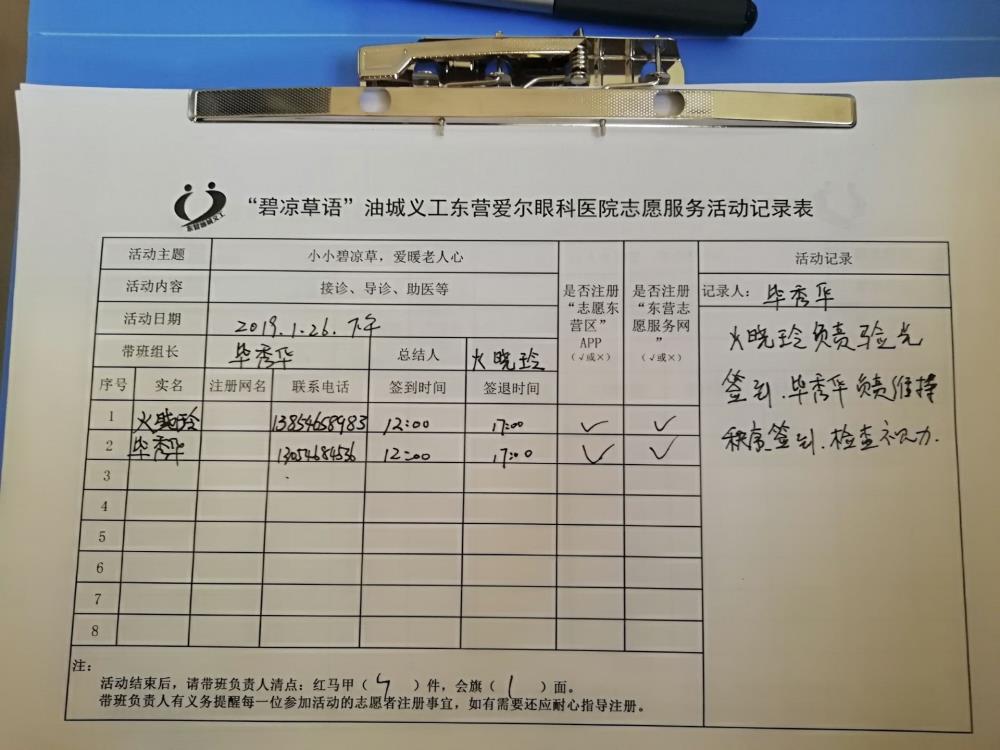 “碧凉草语”油城义工东营爱尔眼科医院志愿服务活动记录表
活动主题 小小碧凉草，爱暖老人心
活动内容 接诊、导诊、助医等
活动日期 2019.1.26.下午
带班组长 毕秀华 总结人 火晓玲
序号 实名 注册网名 联系电话 签到时间 签退时间 是否注册“志愿东营区”APP（√或×） 是否注册“东营志愿服务网”（√或×）
1 火晓玲 13854658983 12:00 17:00 ✓ ✓
2 毕秀华 13054684536 12:00 17:00 ✓ ✓
3
4
5
6
7
8
活动记录
记录人： 毕秀华
火晓玲负责验光
签到.毕秀华负责维持
秩序签到.检查视力.
注：
活动结束后，请带班负责人清点：红马甲（ 7 ）件，会旗（ 1 ）面。
带班负责人有义务提醒每一位参加活动的志愿者注册事宜，如有需要还应耐心指导注册。